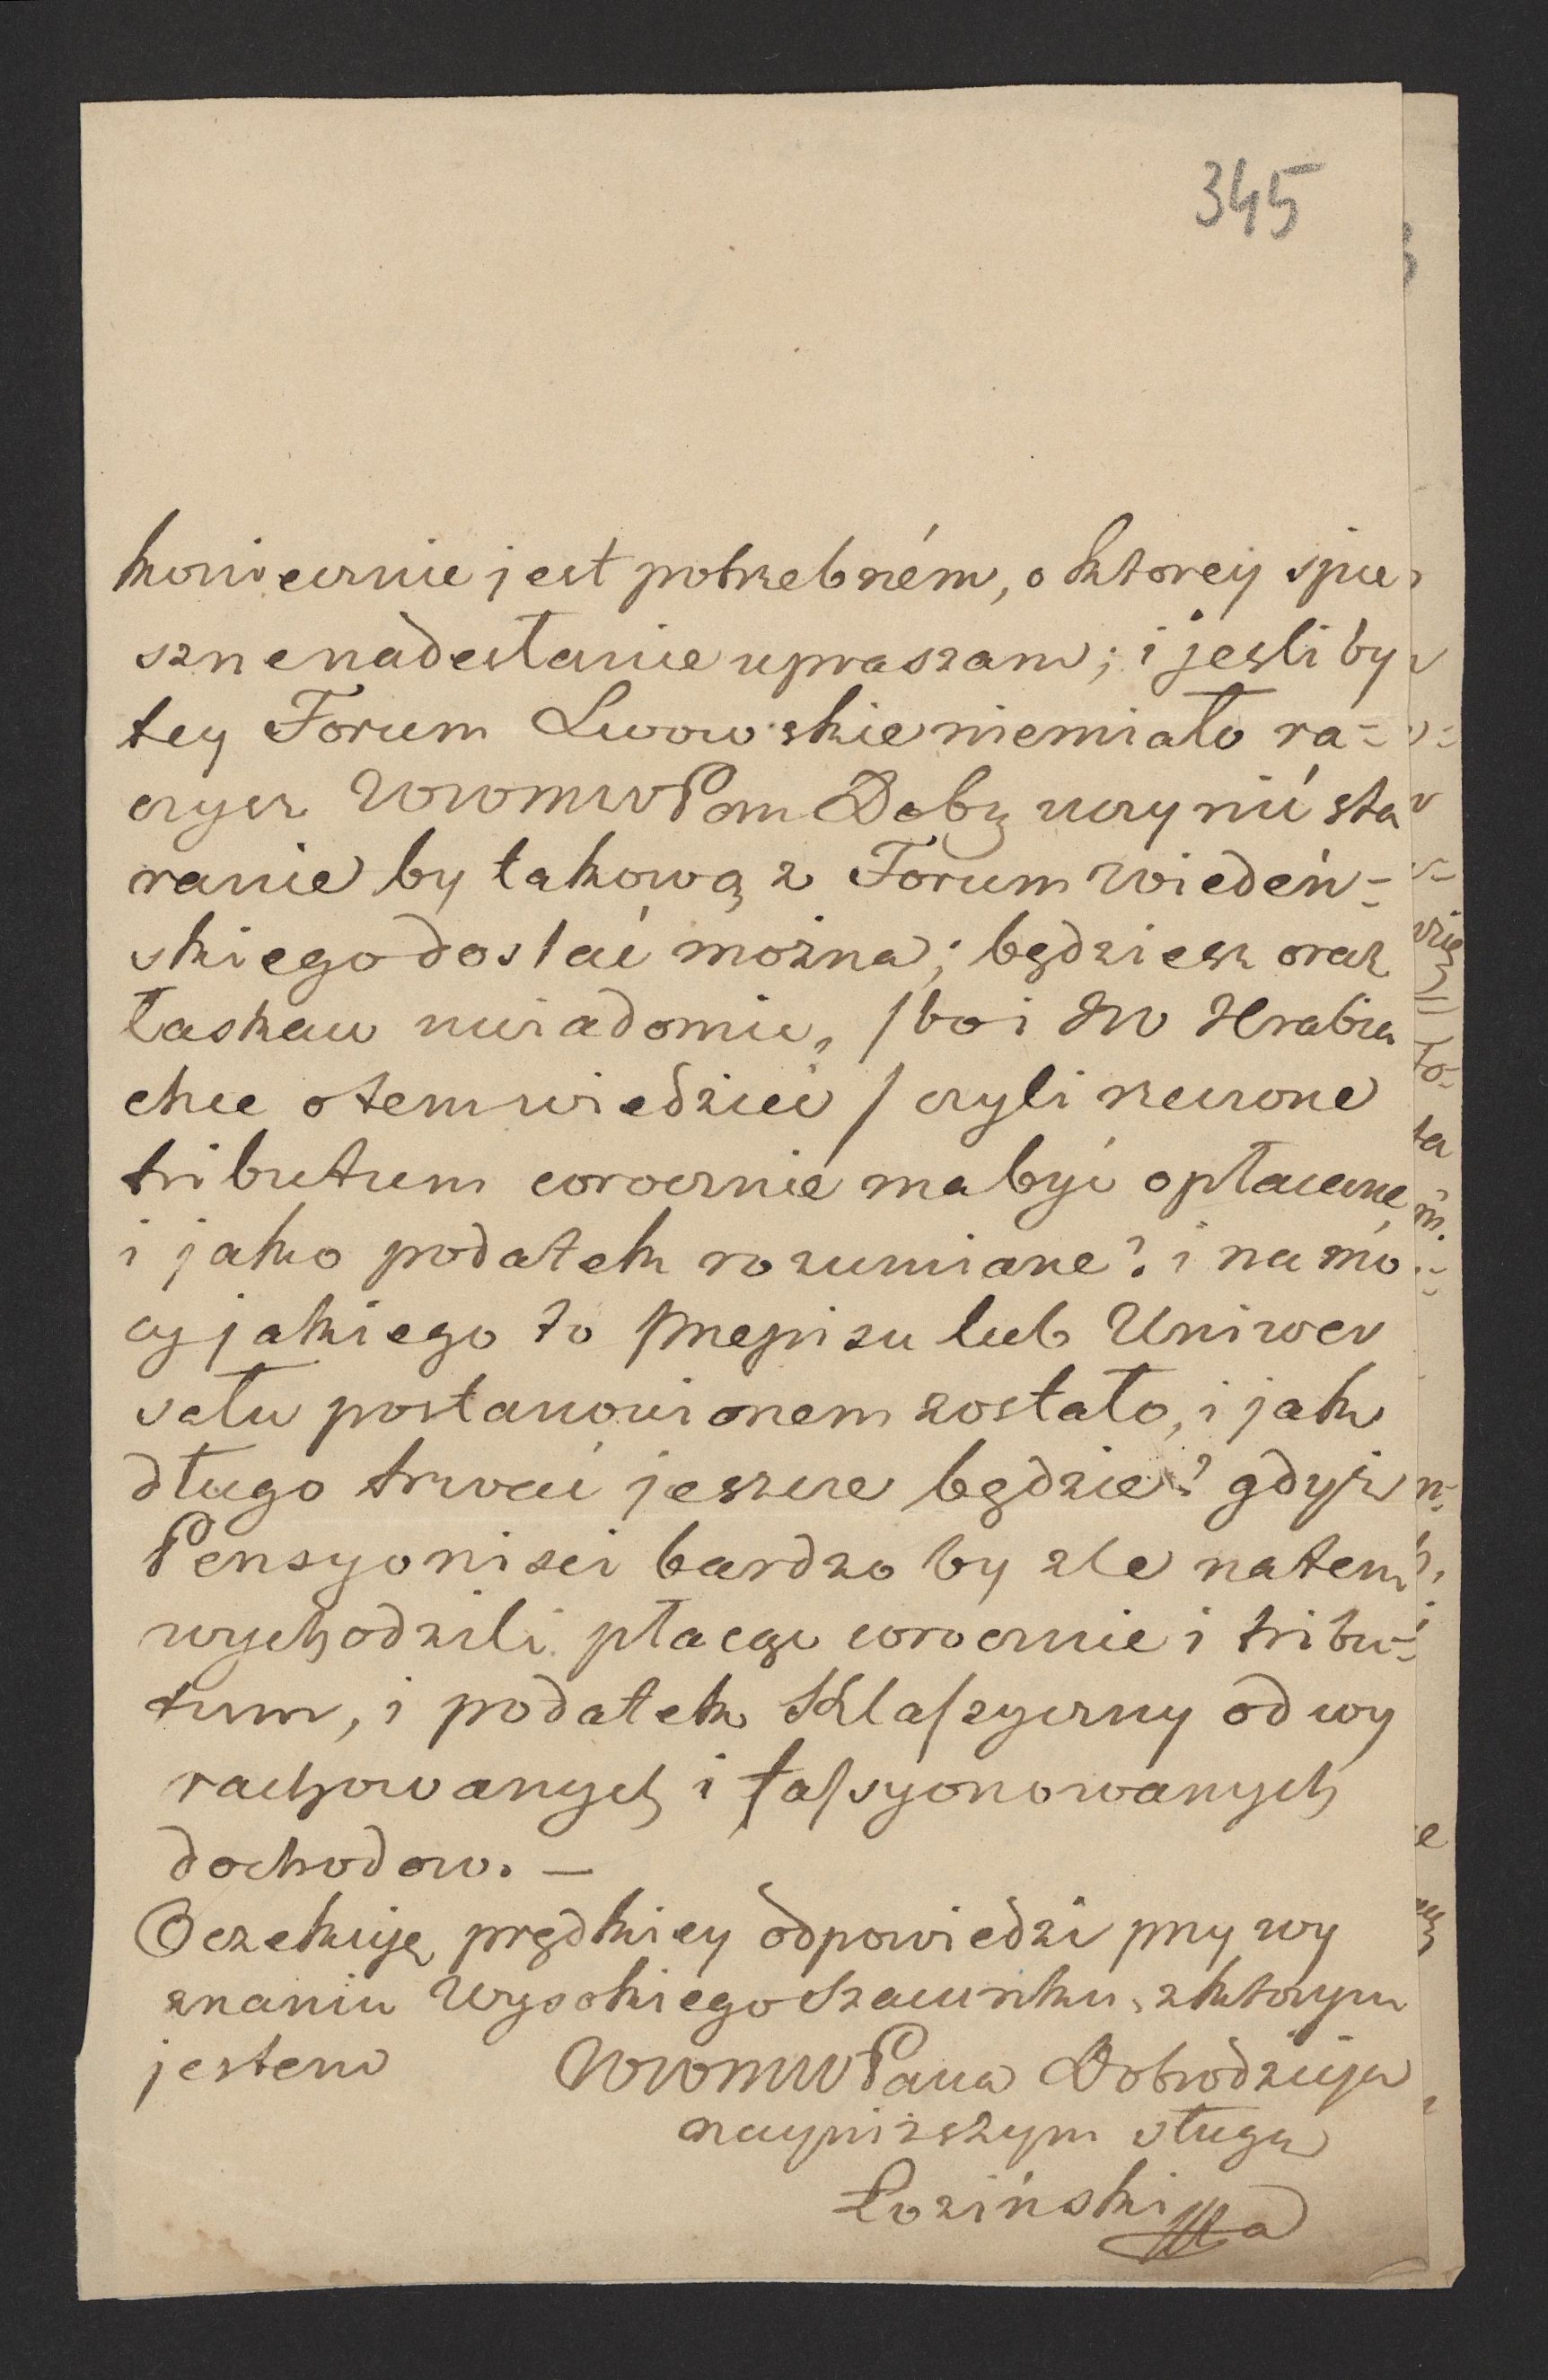 345
koniecznie jest potrzebném, o ktorey spie
szne nadesłanie upraszam; i jesli by
tey Forum Lwowskie niemiało ra=
czysz WWMWPan Dobr uczynić sta
ranie by takową z Forum Wiedeń=
skiego dostać można; będziesz oraz
łaskaw uwiadomić, /bo i JW Hrabia
chce otem wiedzieć/ czyli rzeczone
tributum corocznie ma być opłacane
i jako podatek rozumiane? i na mo
cy jakiego to przepisu lub Uniwer
sału postanowionem zostało, i jak
długo trwać jeszcze będzie? gdyż
Pensyonisci bardzo by zle natem
wychodzili płacąc corocznie i tribu=
tum, i podatek Klaszyczny od wy
rachowanych i fassyonowanych
dochodow. —
Oczekuję prędkiey odpowiedzi przy wy
znaniu Wysokiego Szacunku, z ktorym
jestem WWMWPana Dobrodzieja
nayniższym sługa
Łoziński